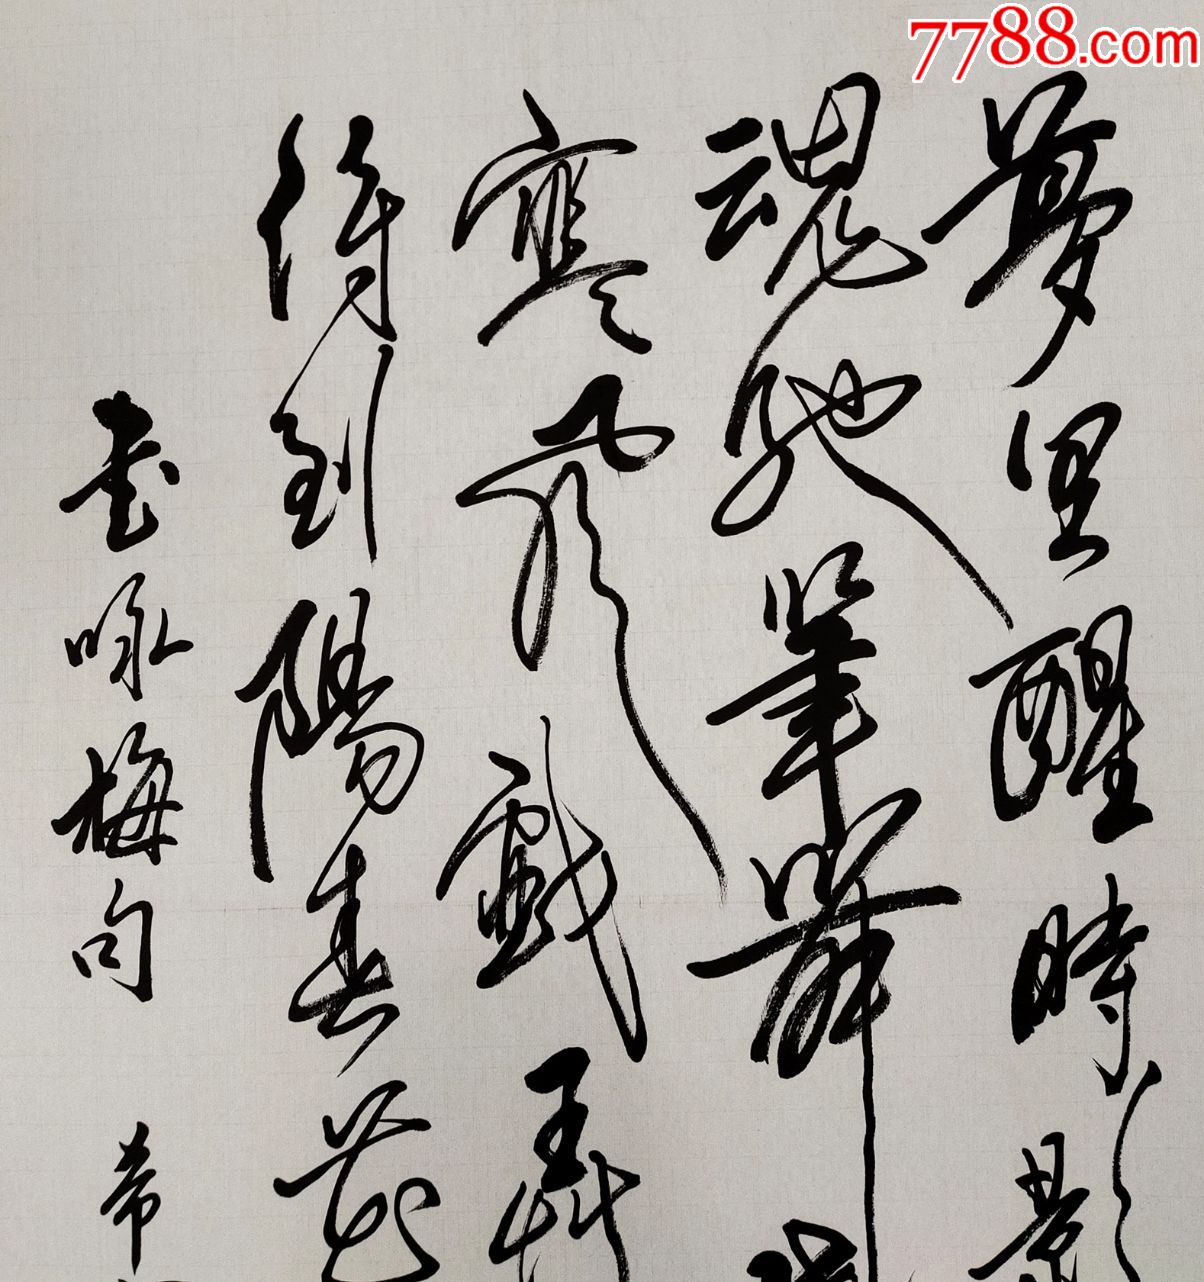 7788.com
夢里醒時影
魂馳筆舞
寒飛戲
待到陽春花
書咏梅句 希